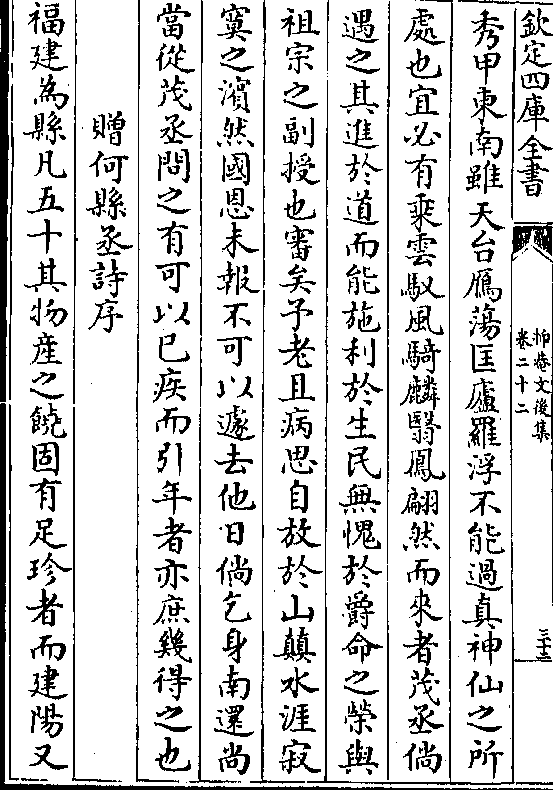 欽定四庫全書
抑菴文後集
卷二十二
三十三
秀甲東南雖天台鴈蕩匡廬羅浮不能過真神仙之所
處也宜必有乘雲馭風騎麟翳鳳翩然而來者茂丞倘
遇之其進於道而能施利於生民無愧於爵命之榮與
祖宗之副授也審矣予老且病思自放於山顛水涯寂
寞之濱然國恩未報不可以遽去他日倘乞身南還尚
當從茂丞問之有可以已疾而引年者亦庶幾得之也
贈何縣丞詩序
福建為縣凡五十其物産之饒固有足珍者而建陽又